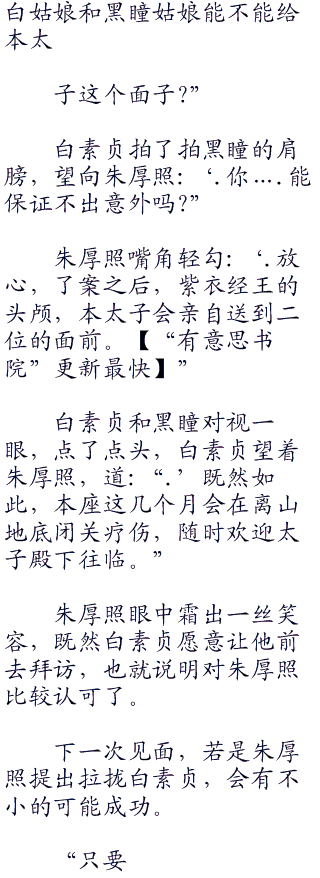 白姑娘和黑瞳姑娘能不能给
本太
子这个面子?”
白素贞拍了拍黑瞳的肩
膀，望向朱厚照:‘.你....能
保证不出意外吗?”
朱厚照嘴角轻勾:‘.放
心，了案之后，紫衣经王的
头颅，本太子会亲自送到二
位的面前。【“有意思书
院”更新最快】”
白素贞和黑瞳对视一
眼，点了点头，白素贞望着
朱厚照，道:“.’既然如
此，本座这几个月会在离山
地底闭关疗伤，随时欢迎太
子殿下往临。”
朱厚照眼中霜出一丝笑
容，既然白素贞愿意让他前
去拜访，也就说明对朱厚照
比较认可了。
下一次见面，若是朱厚
照提出拉拢白素贞，会有不
小的可能成功。
“只要